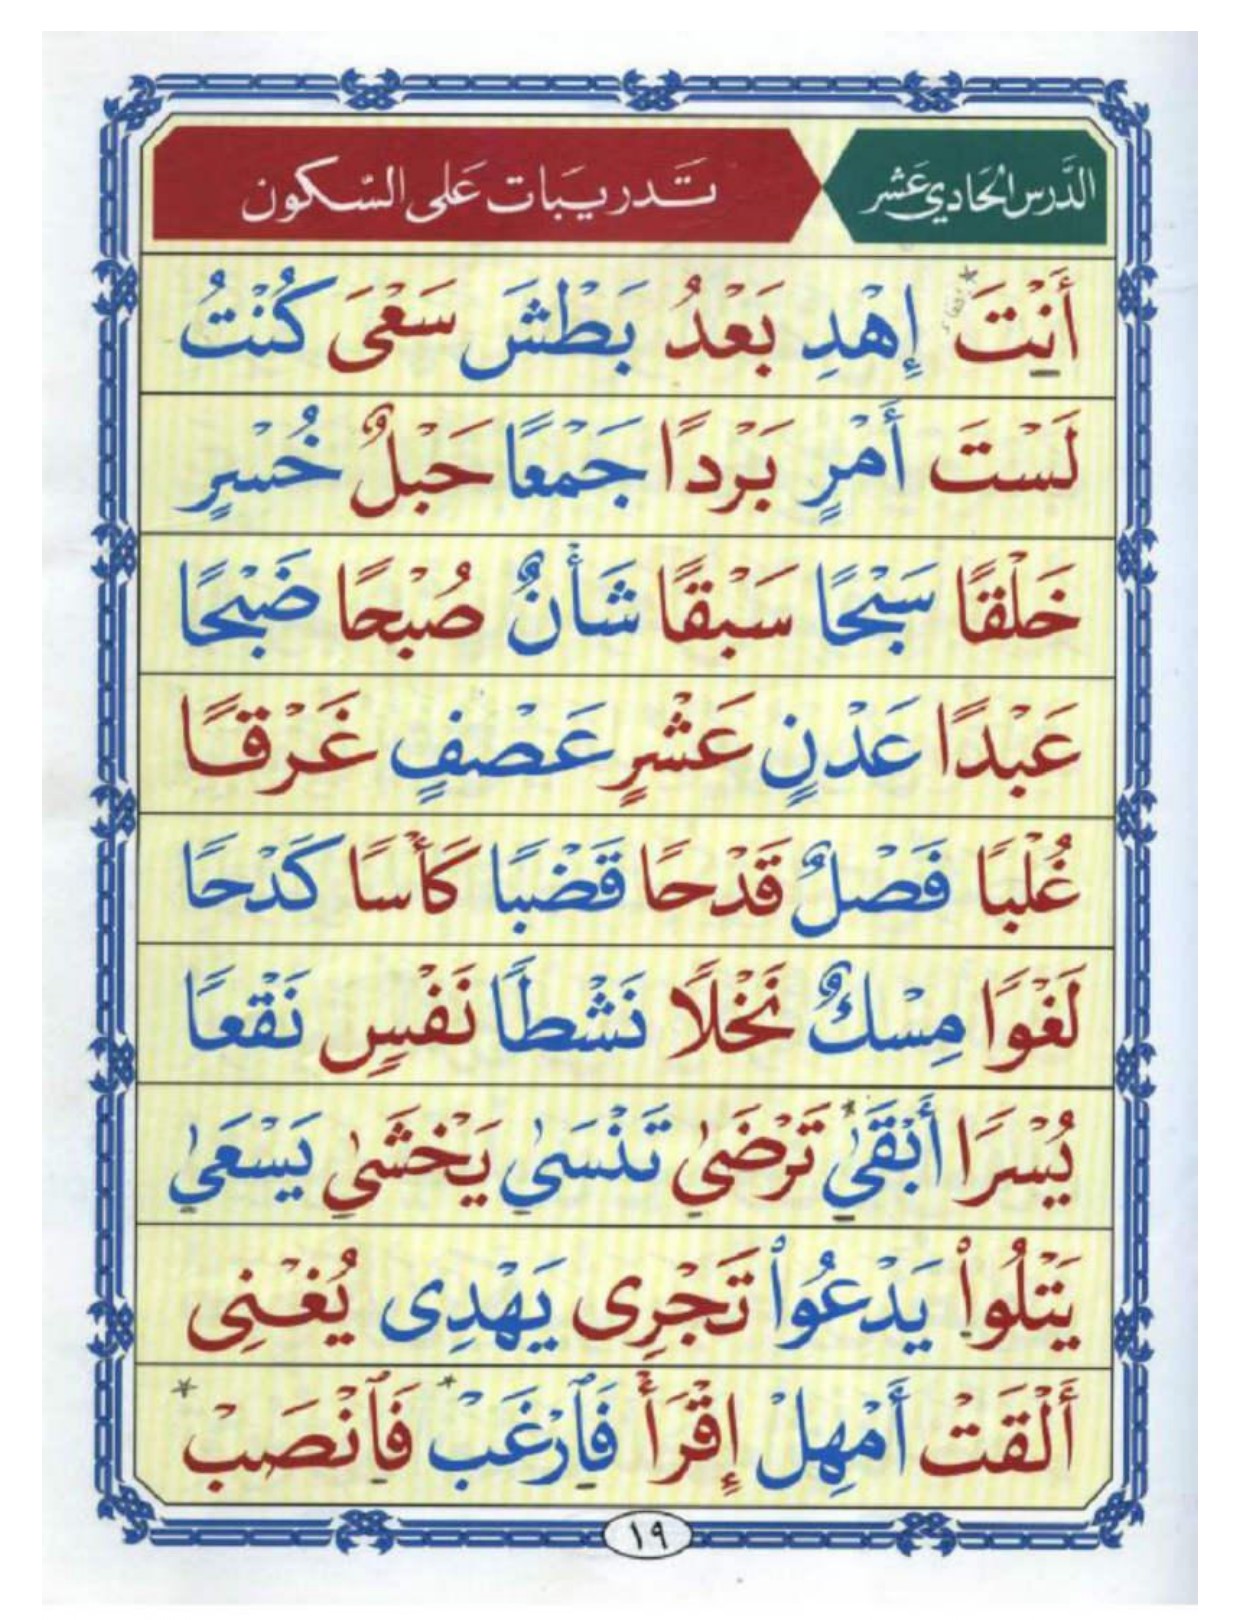 الدَّرس الحَادي عَشر
تَدريبَات عَلى السّكون
أَنْتَ إِهْدِ بَعْدُ بَطْشَ سَعْىَ كُنْتُ
لَسْتَ أَمْرٍ بَرْدًا جَمْعًا حَبْلٌ خُسْرٍ
خَلْقًا سَبْحًا سَبْقًا شَأْنٌ صُبْحًا ضَبْحًا
عَبْدًا عَدْنٍ عَشْرٍ عَصْفٍ غَرْقًا
غُلْبًا فَصْلٌ قَدْحًا قَضْبًا كَأْسًا كَدْحًا
لَغْوًا مِسْكٌ نَخْلًا نَشْطًا نَفْسٍ نَقْعًا
يُسْرًا أَبْقَىٰ تَرْضَىٰ تَنْسَىٰ يَخْشَىٰ يَسْعَىٰ
يَتْلُواْ يَدْعُواْ تَجْرِى يَهْدِى يُغْنِى
أَلْقَتْ أَمْهِلْ إِقْرَأْ فَٱرْغَبْ فَٱنْصَبْ
١٩